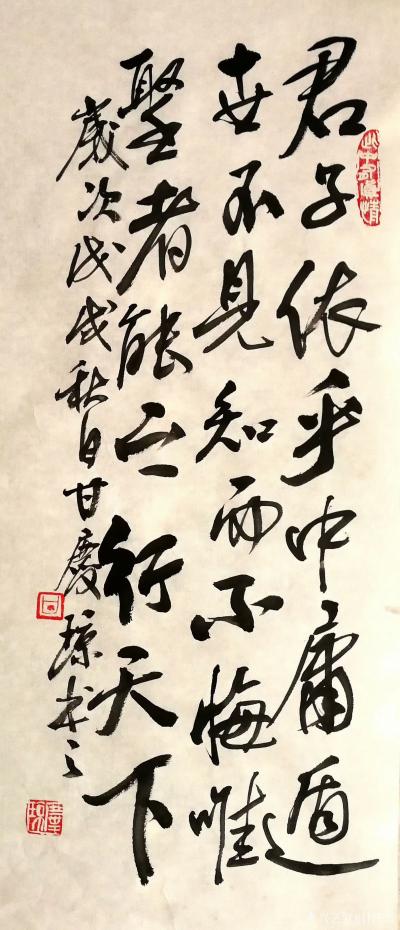 君子依乎中庸遁
世不見知而不悔唯
聖者能之行天下
歲次戊戌秋日甘慶琼书之